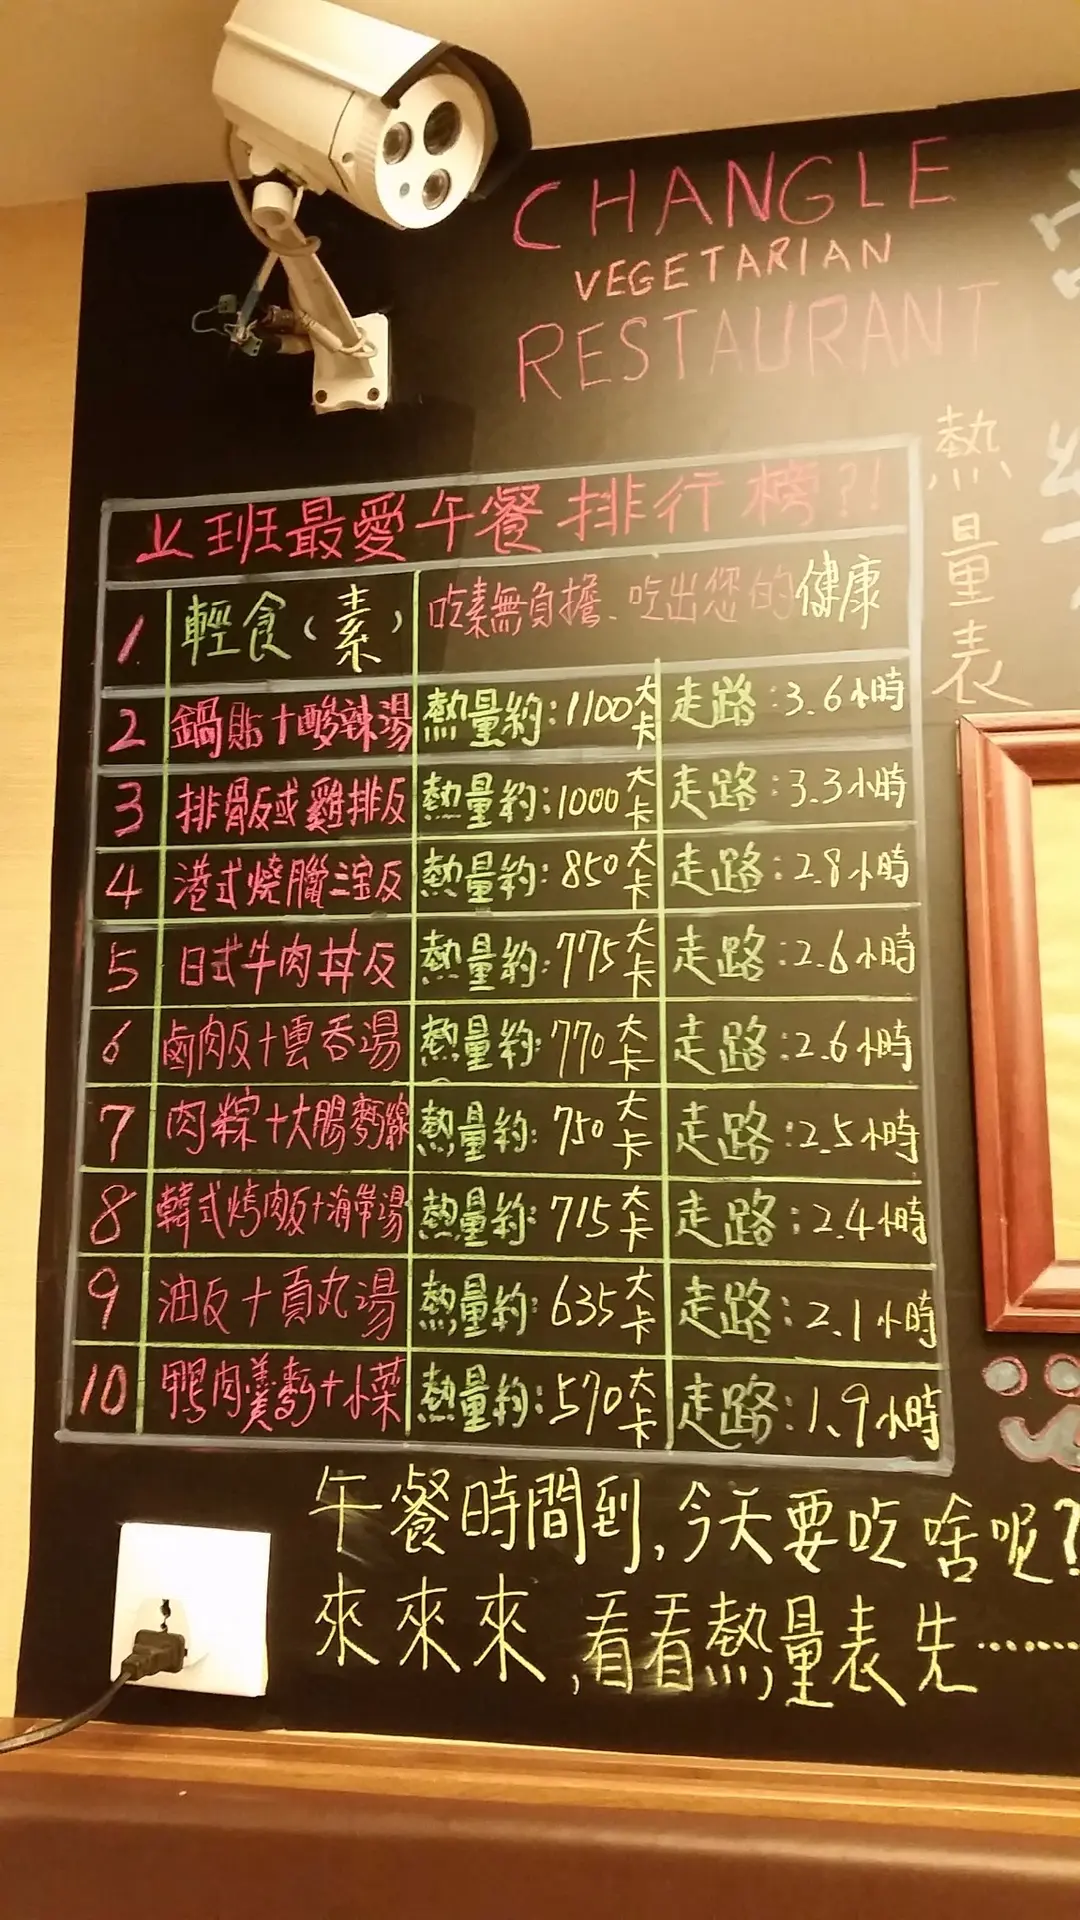 CHANGLE
VEGETARIAN
RESTAURANT
熱量表
上班最愛午餐排行榜?!
1 輕食(素) 吃素無負擔、吃出您的健康
2 鍋貼+酸辣湯 熱量約:1100大卡 走路:3.6小時
3 排骨反或雞排反 熱量約:1000大卡 走路:3.3小時
4 港式燒臘三宝反 熱量約:850大卡 走路:2.8小時
5 日式牛肉丼反 熱量約:775大卡 走路:2.6小時
6 鹵肉反+雲吞湯 熱量約:770大卡 走路:2.6小時
7 肉粽+大腸麵線 熱量約:750大卡 走路:2.5小時
8 韓式烤肉反+海帶湯 熱量約:715大卡 走路:2.4小時
9 油反+貢丸湯 熱量約:635大卡 走路:2.1小時
10 鴨肉羹麵+小菜 熱量約:570大卡 走路:1.9小時
午餐時間到,今天要吃啥呢?
來來來,看看熱量表先……